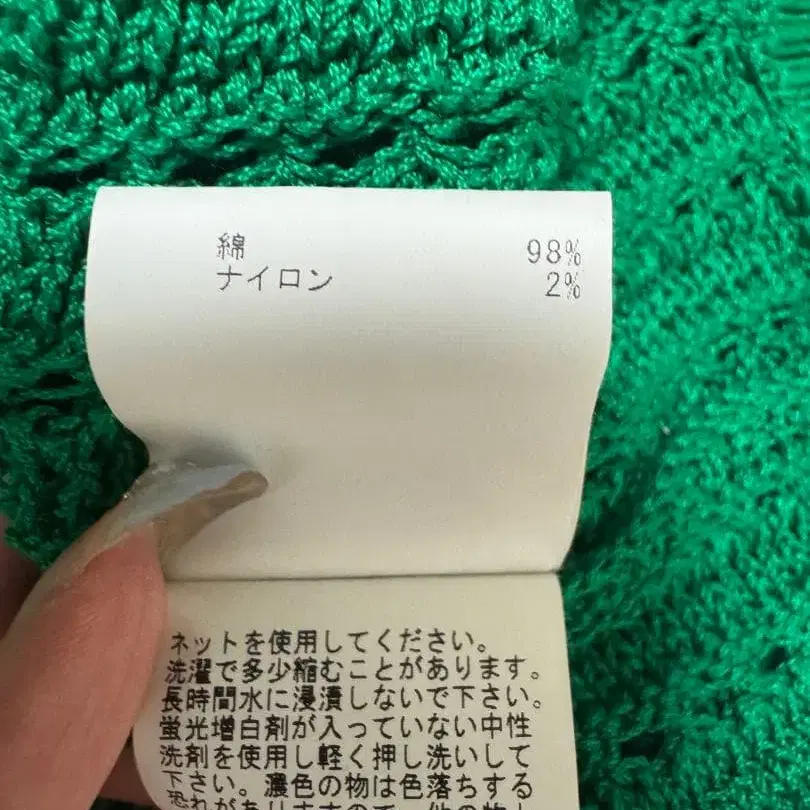 綿 98%
ナイロン 2%
ネットを使用してください。
洗濯で多少縮むことがあります。
長時間水に浸漬しないで下さい。
蛍光増白剤が入っていない中性
洗剤を使用し軽く押し洗いして
下さい。濃色の物は色落ちする
恐れがありますので、他の物と